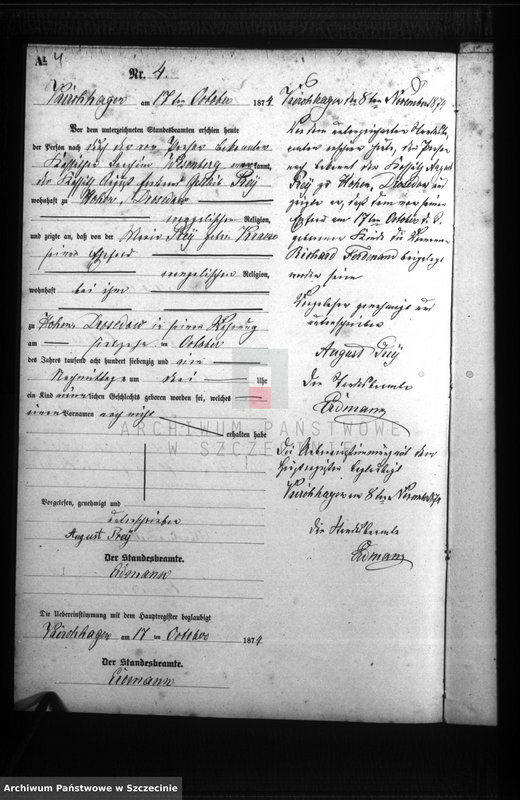 № 4
Nr. 4.
Kirchhagen am 17 ten October 1874
Vor dem unterzeichneten Standesbeamten erschien heute
der Person nach durch den von Person bekannten
kannt,
der August Frey
wohnhaft zu Hohen, Dresedow
evangelischer Religion,
und zeigte an, daß von der Marie Frey geb. Krause
seiner Ehefrau
evangelischer Religion,
wohnhaft bei ihm
zu Hohen, Dresedow in seiner Wohnung
am siebzehn ten October
des Jahres tausend acht hundert siebenzig und vier
Nachmittags um drei Uhr
ein Kind männlichen Geschlechts geboren worden sei, welches
einen Vornamen noch nicht
erhalten habe
Vorgelesen, genehmigt und
unterschrieben
August Frey
Der Standesbeamte.
Erdmann
Die Uebereinstimmung mit dem Hauptregister beglaubigt
Kirchhagen am 17 ten October 1874
Der Standesbeamte.
Erdmann
Kirchhagen den 8ten November 1874
Vor dem unterzeichneten Standesbe-
amten erschien heute, der Person
nach bekannt der August
Frey zu Hohen, Dresedow und
zeigte an, daß dem von seiner
Ehefrau am 17ten October d. J.
geborenen Kinde die Vornamen
Richard Ferdinand beigelegt
worden seien
Vorgelesen genehmigt und
unterschrieben
August Frey
Der Standesbeamte
Erdmann
Die Uebereinstimmung mit dem
Hauptregister beglaubigt
Kirchhagen am 8ten November 1874
Der Standesbeamte
Erdmann
ARCHIWUM PAŃSTWOWE
W SZCZECINIE
Archiwum Państwowe w Szczecinie